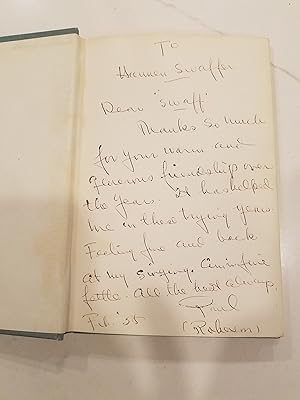 To
Hannen Swaffer
Dear "Swaff"
Thanks so much
for your warm and
generous friendship over
the years. It has helped
me in these trying years.
Feeling fine and back
at my singing. Am in fine
fettle. All the best always,
Paul
Feb. '55
(Robeson)